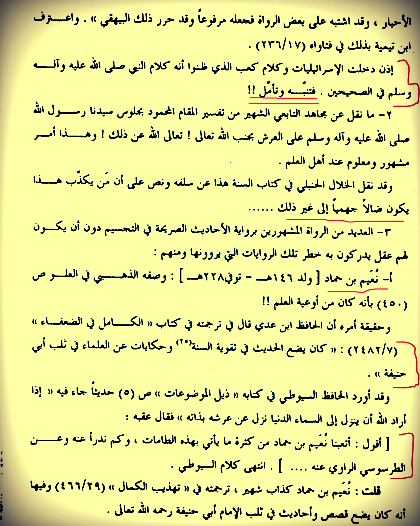 الأحبار ، وقد اشتبه على بعض الرواة فجعله مرفوعاً وقد حرر ذلك البيهقي » . واعترف
ابن تيمية بذلك في فتاواه (٢٣٦/١٧) .
إذن دخلت الإسرائيليات وكلام كعب الذي ظنوا أنه كلام النبي صلى الله عليه وآله
وسلم في الصحيحين . فتنبَّه وتأمَّل !!
٢- ما نقل عن مجاهد التابعي الشهير من تفسير المقام المحمود بجلوس سيدنا رسول الله
صلى الله عليه وآله وسلم على العرش بجنب الله تعالى ! تعالى الله عن ذلك ! وهذا أمر
مشهور ومعلوم عند أهل العلم .
وقد نقل الخلال الحنبلي في كتاب السنة هذا عن سلفه ونص على أن مَن يكذّب هذا
يكون ضالاً جهمياً إلى غير ذلك ......
٣- العديد من الرواة المشهورين برواية الأحاديث الصريحة في التجسيم دون أن يكون
لهم عقل يدركون به خطر تلك الروايات التي يروونها ومنهم :
أ- نُعَيم بن حماد [ ولد ١٤٦هـ - توفي٢٢٨هـ ] : وصفه الذهبي في العلو ص
(٤٥٠) بأنه كان من أوعية العلم !!
وحقيقة أمره أن الحافظ ابن عدي قال في ترجمته في كتاب « الكامل في الضعفاء »
(٢٤٨٢/٧) : « كان يضع الحديث في تقوية السنة(٢٥) وحكايات عن العلماء في ثلب أبي
حنيفة » .
وقد أورد الحافظ السيوطي في كتابه « ذيل الموضوعات » ص (٥) حديثاً جاء فيه « إذا
أراد الله أن ينزل إلى السماء الدنيا نزل عن عرشه بذاته » فقال عقبه :
[ أقول : أتعبنا نُعَيم بن حماد من كثرة ما يأتي بهذه الطامات ، وكم ندرأ عنه وعن
الطرسوسي الراوي عنه .... ] . انتهى كلام السيوطي .
قلت : نُعَيم بن حماد كذاب شهير ، ترجمته في « تهذيب الكمال » (٤٦٦/٢٩) وفيها
أنه كان يضع قصص وأحاديث في ثلب الإمام أبي حنيفة رحمه الله تعالى .